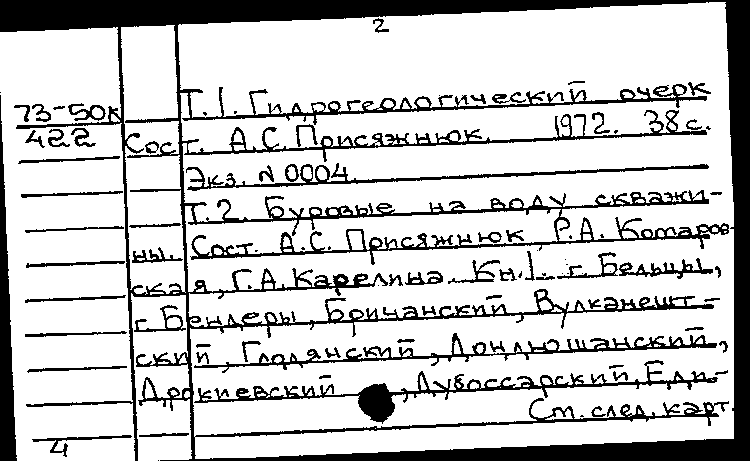 2
73-50к Т.1. Гидрогеологический очерк
422 Сост. А.С. Присяжнюк. 1972. 38 с.
Экз. N 0004.
Т.2. Буровые на воду скважи-
ны. Сост. А.С. Присяжнюк, Р.А. Комаров-
ская, Г.А. Карелина. Кн.1. г. Бельцы,
г. Бендеры, Бричанский, Вулканешт-
ский, Глодянский, Дондюшанский,
Дрокиевский, Дубоссарский, Еди-
См. след. карт.
4